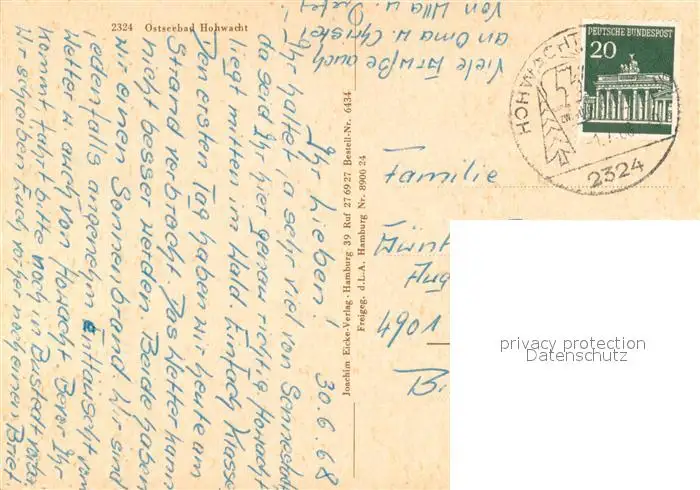 2324 Ostseebad Hohwacht
30.6.68
Ihr Lieben!
Ihr haltet ja sehr viel von Sonne satt,
da seid Ihr hier genau richtig. Howacht
liegt mitten im Wald. Einfach Klasse
Den ersten Tag haben wir heute am
Strand verbracht. Das Wetter kann
nicht besser werden. Beide haben
wir einen Sonnenbrand. Wir sind
jedenfalls angenehm Enttäuscht vom
Wetter u. auch von Howacht. Bevor Ihr
kommt, fahrt bitte noch in
Wir schreiben Euch vorher noch einen Brief.
Viele Grüße auch
an Oma u. Christel
Von Ulla u.
Joachim Eicke-Verlag · Hamburg 39 Ruf 27 69 27 Bestell-Nr. 6434
Freigeg. d. L.A. Hamburg Nr. 8900 24
DEUTSCHE BUNDESPOST
20
HOHWACHT
2324
Familie
4901
privacy protection
Datenschutz